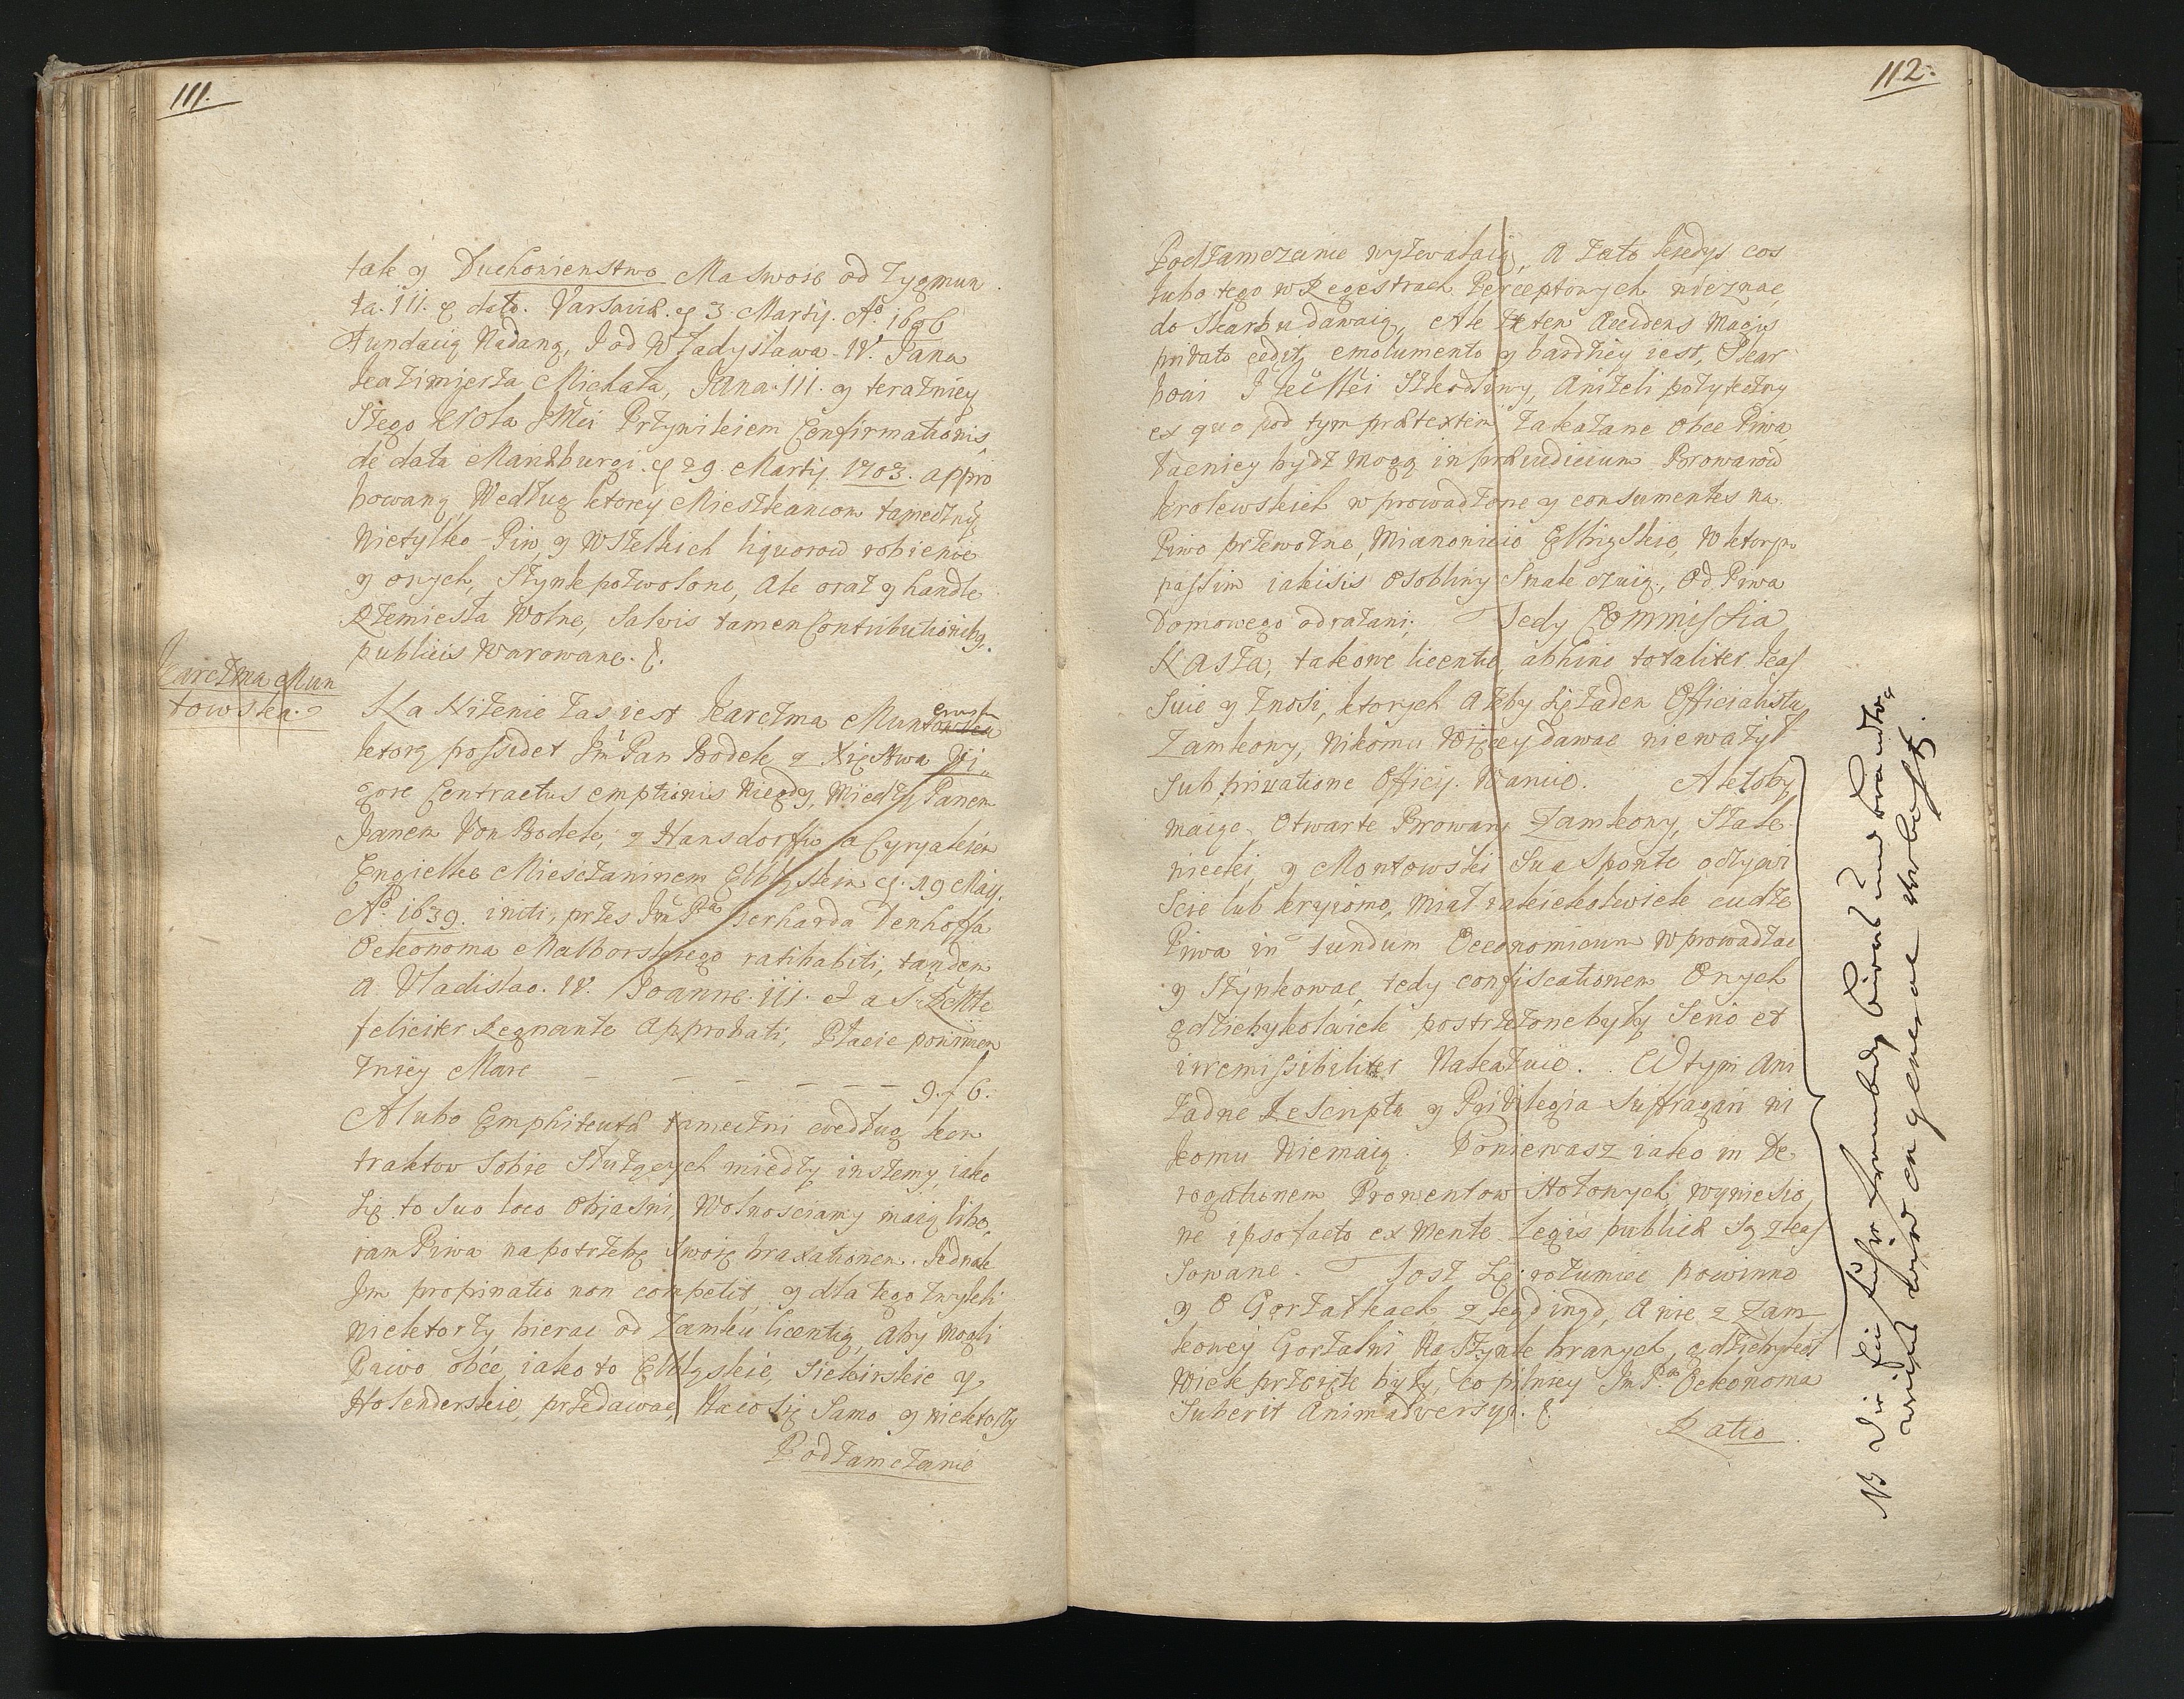 111.
tak y Duchowienstwo Ma swoię od Zygmun
ta. III. de dato. Varsaviæ. d. 3 Martij. Aō. 1606
Fundaiią Nadaną, I od Władysława. IV. Jana
Kazimierza, Michała, Jana. III. y teraznieÿ
szego Krola JMći Przywileiem Confirmationis
de data Marÿburgi. d. 29. Martij. 1703. appro
bowaną, Według ktorey Mieszkancom tamecznÿ
Nietylko Piw, y Wszelkich liquorow robienie
y onych, Szynk pozwolone, Ale oraz y handle
Rzemiesła Wolne, Salvis tamen Contributionibȝ
publicis Warowane. &.
Karczma Mun
towska.
Na Nizenie zas iest Karczma Muntowska
ktorą possidet Jm̄ Pan Bodek z Xięstwa Vi„
gore Contractus emptionis Niegdy, Między Panem
Janem Von Bodek, z Hansdorffu a Cyryakiem
Engielke Miesczaninem Elblyskim d. 19 Maij.
Aō. 1639. initi, przes Jm̄ Pͣ Gerharda Denhoffa
Oekonoma Malborskiego ratihabiti, tandem
a Vladislao. IV. Joanne. III. et a S: R: Mte
feliciter Regnante Approbati, Płacic powinien
zniey Marc — — — — — — 9. f 6.
A lubo Emphiteutæ tameczni według kon
traktow Sobie Służących między inszemy, iako
się to Suo loco Obiasni, Wolnosciamy maią libe„
ram Piwa na potrzebę swoię braxationem. Jednak
Im propinatio non competit, y dla tego zwykli
Niektorzy bierac od Zamku licentią, Aby Mogli
Paiwo obce, iako to Elblyskie, Siebirskie y
Holenderskie, przedawac, Na co się Samo y niektorzy
Podzamczanie
112.
Podzamczanie wyzewalaią, A zato kiedys cos
lubo tego w Regestrach Perceptowych nieznac,
do Skarbu dawaią, Ale Ze ten Accidens Magis
privato cedit, emolumento y bardziey iest, Skar
bowi I K. Mći Szkodliwy, Anizeli pozyteczny
ex quo pod tym prætextem Zakazane Obce Piwa,
Tacniey bydz Mogą in præiudicium Browarow
Krolewskich wprowadzone y consumentes na
Piwo przewozne, Mianowicie Elblyskie, W ktorym
passim iakisis Osobliwy Smak czuią, Od Piwa
Domowego odrazani; Tedy Commissia
Nasza, takowe licentie, abhinc totaliter kas
suie y Znosi, ktorych Azeby się zaden Officialista
Zamkowy, Nikomu Więcey dawac niewazył
Sub privatione Officij. Waruie. A ktoby
maiąc, Otwarte Browary Zamkowy, Stale
niecki, y Montowski Sua Sponte odzywi
Scie lub kryiomo, Miał iakiekolwiek cudze
Piwa in Fundum Oeconomicum wprowadzac
y Szynkowac, tedy confiscationem Onych
gdziebykolwiek postrzezone były Serio et
irremissibiliter Nakazuie. W tym Ani
Zadne Rescripta y Privilegia Suffragari ni
komu Niemaią. Poniewasz iako in De„
rogationem Prowentow Stołowych wyniesio„
ne ipso facto ex Mente Legis publicæ Są zkas„
sowane. Tosz się rozumiec powinno
y O Gorzałkach z kąd inąd, A nie z Zam
kowey Gorzalni Na Szynk branych, gdziekykol
Wiek przeięte były, Co pilney Jm̄ Pͣ Oekonoma
Suberit Animadversyi. &.
Ratio
NB die Ein fuhr frembdes biers und brandtw.
wird in general verbohten.